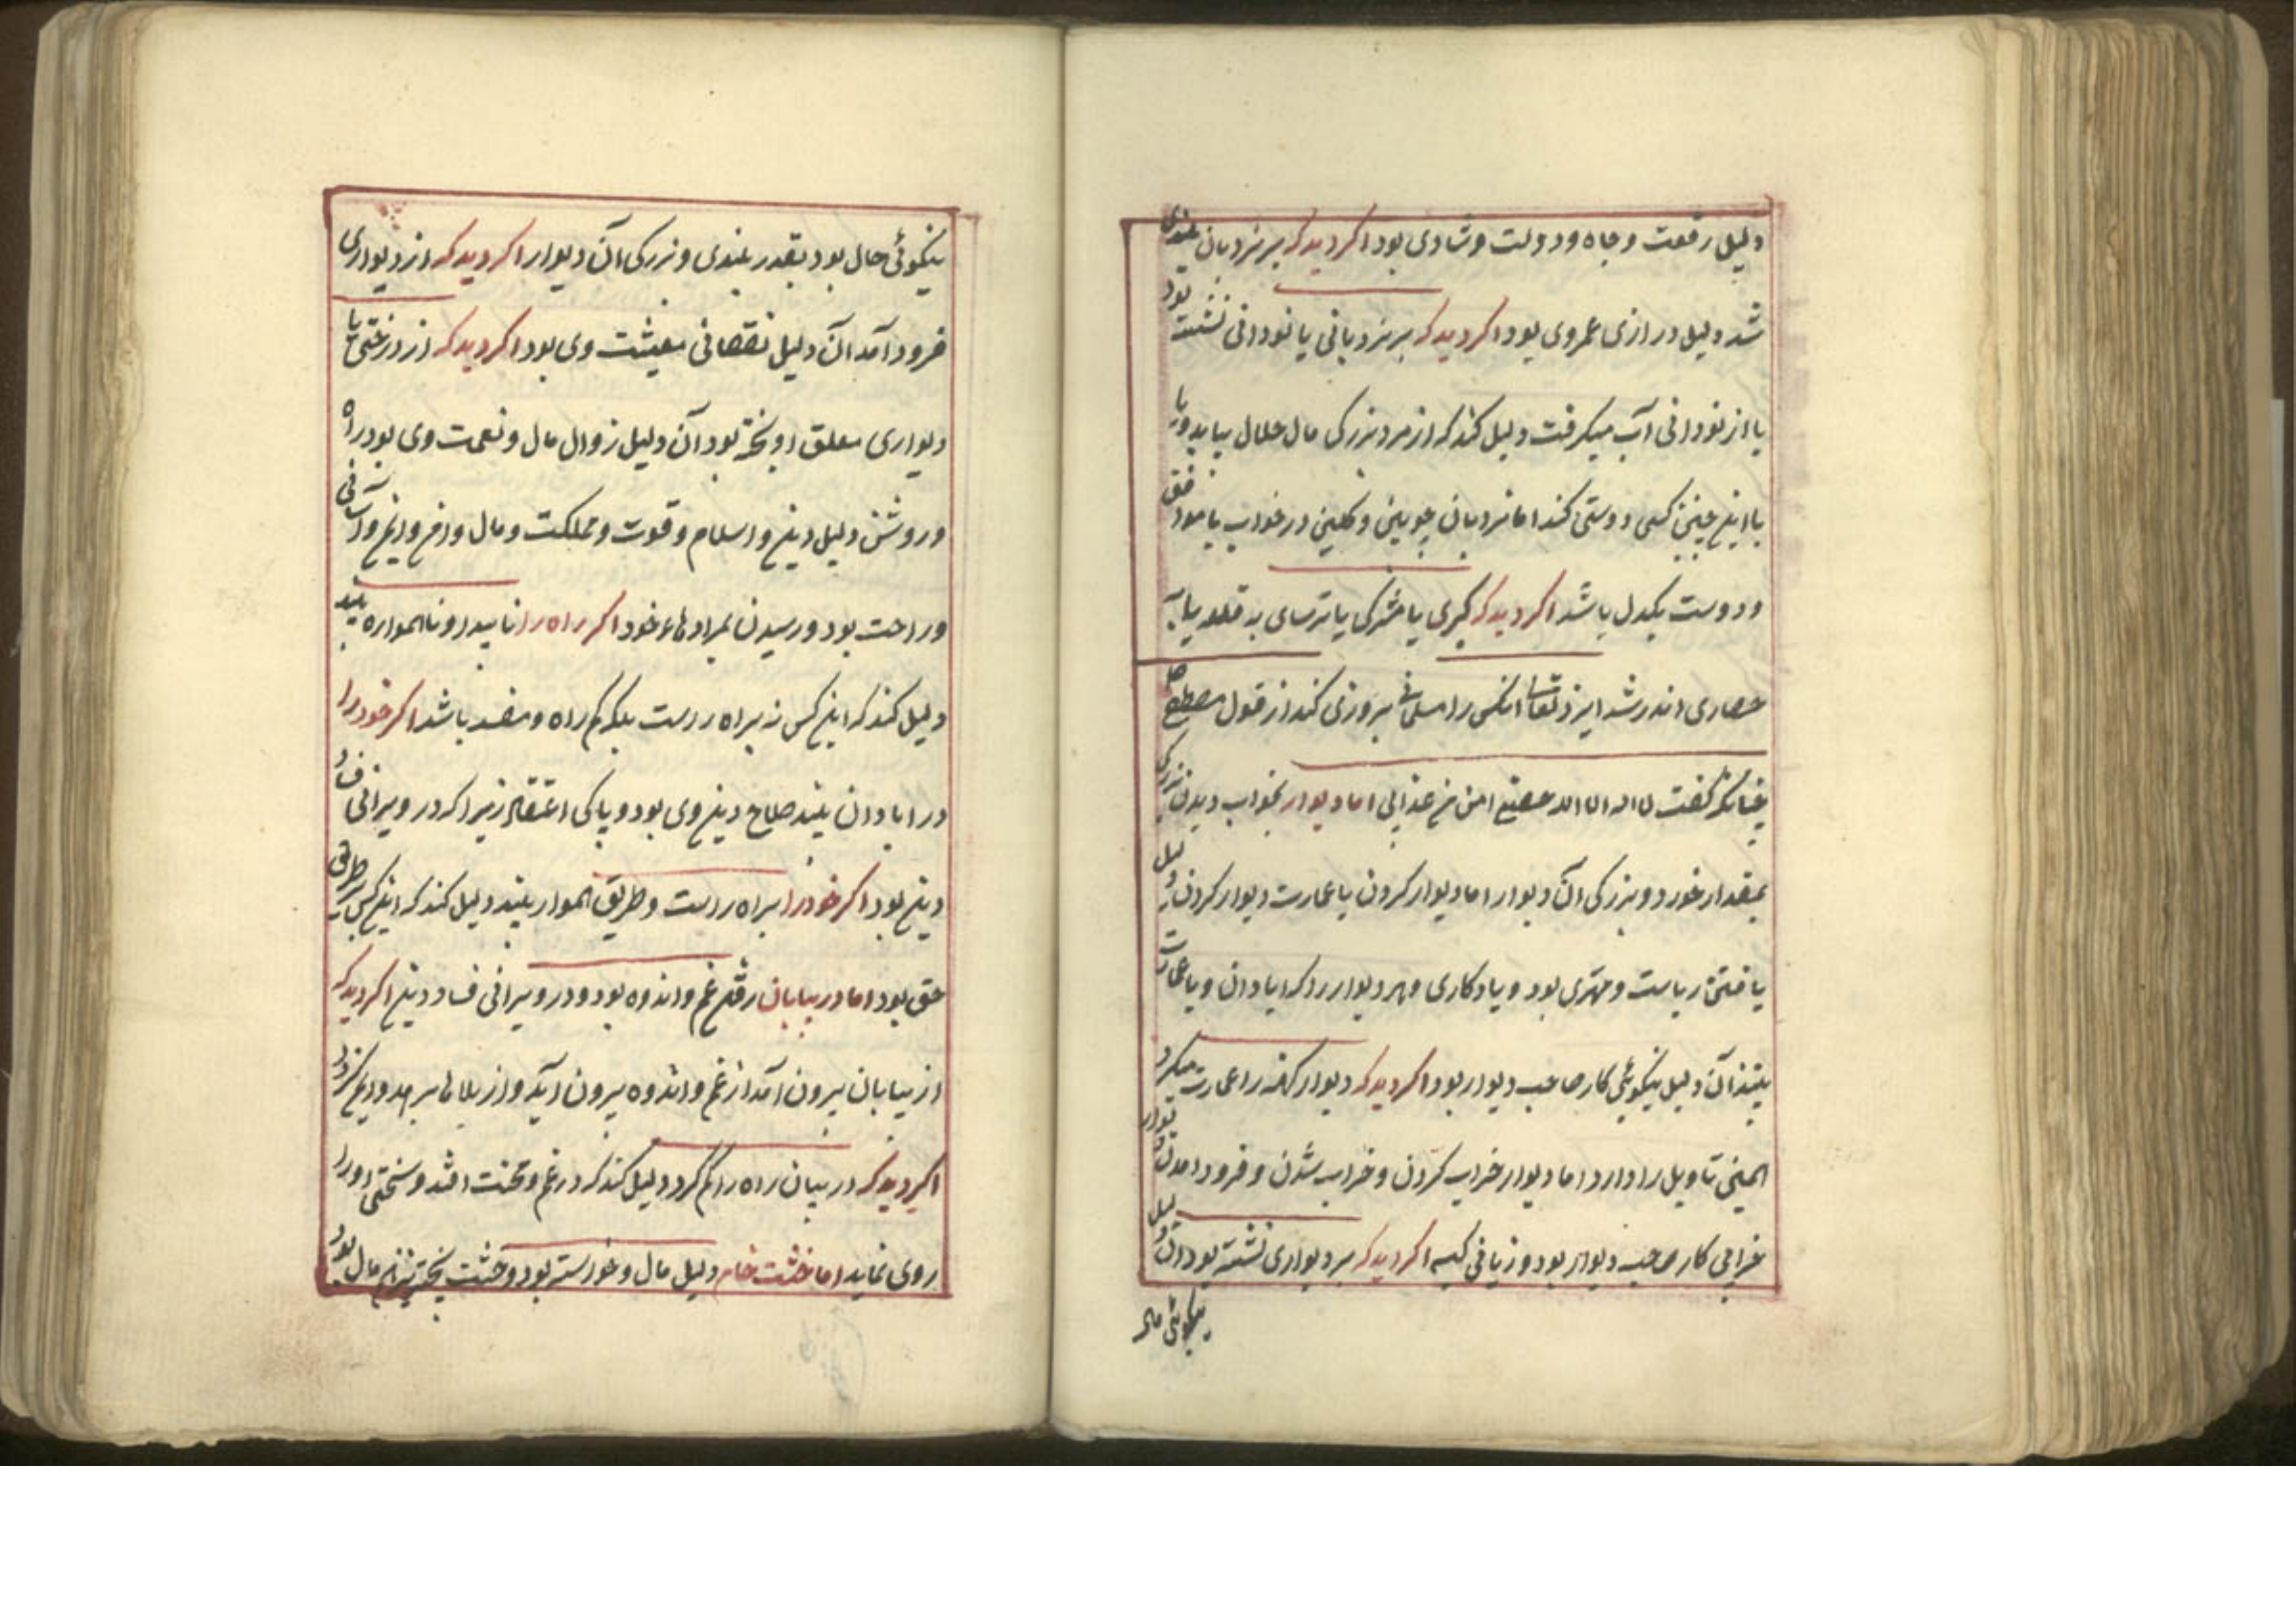 دلیل رفعت و جاه و دولت و شادی بود اکر دید که بر نردبان بلندی
شد دلیل درازی عمر وی بود اکر دید که بر نردبانی یا نودانی نشسته بود
یا از نودانی آب میکرفت دلیل کند که از مرد بزرکی مال حلال بیابد ویا
با اینچنین کسی دوستی کند اما نردبان چوبین و کلین در خواب با مردم منافق
و دوست یکدل باشد اکر دید که کبری یا مشرکی یا ترسای به قلعه یا به
حصاری اندر شد ایزد تعالی انکس را مسلمانی بروزی کند از قول مصطفی
چنانکه کفت لا اله الا الله حصنی امن من عذابی اما دیوار بخواب دیدن بزرکی
بمقدار خورد و بزرکی آن دیوار اما دیوار کردن یا عمارت دیوار کردن دلیل
یافتن ریاست و مهتری بود و یادکاری و هر دیوار را که ابادان و یا عمارت
بیند آن دلیل نیکوئی کار صاحب دیوار بود اکر دید که دیوار کهنه را عمارت میکرد
همین تاویل را دارد اما دیوار خراب کردن و خراب شدن و فرود امدن دیوار
خرابی کار صاحب دیوار بود و زیانی کیسه اکر دید که بر دیواری نشسته بود آن دلیل
نیکوئی حال
نیکوئی حال بود بقدر بلندی و بزرکی آن دیوار اکر دید که از دیواری
فرود آمد آن دلیل نقصانی معیشت وی بود اکر دید که از درختی یا
دیواری معلق اویخته بود آن دلیل زوال مال و نعمت وی بود راه
و روشن دلیل دین و اسلام و قوت و مملکت و مال وافر و ایمن و آسانی
و راحت بود و رسیدن بمرادهاء خود اکر راه را ناپیدا و ناهمواره بیند
دلیل کند که این کس نه براه راست بلکه کم راه و مفسد باشد اکر خود را
در ابادان بیند صلاح دین وی بود و پاکی اعتقاد زیرا که در ویرانی فساد
دین بود اکر خود را براه راست و طریق هموار بیند دلیل کند که این کس بر طریق
حق بود اما در بیابان رفتن غم و اندوه بود و در ویرانی فساد دین اکر دید که
از بیابان بیرون آمد از غم و اندوه بیرون آید و از بلاها برهد و ایمن کردد
اکر دید که در بیابان راه را کم کرد دلیل کند که در غم و محنت افتد و سختی او را
روی نماید اما خشت خام دلیل مال و خورسته بود و خشت پخته نیز هم مال بود